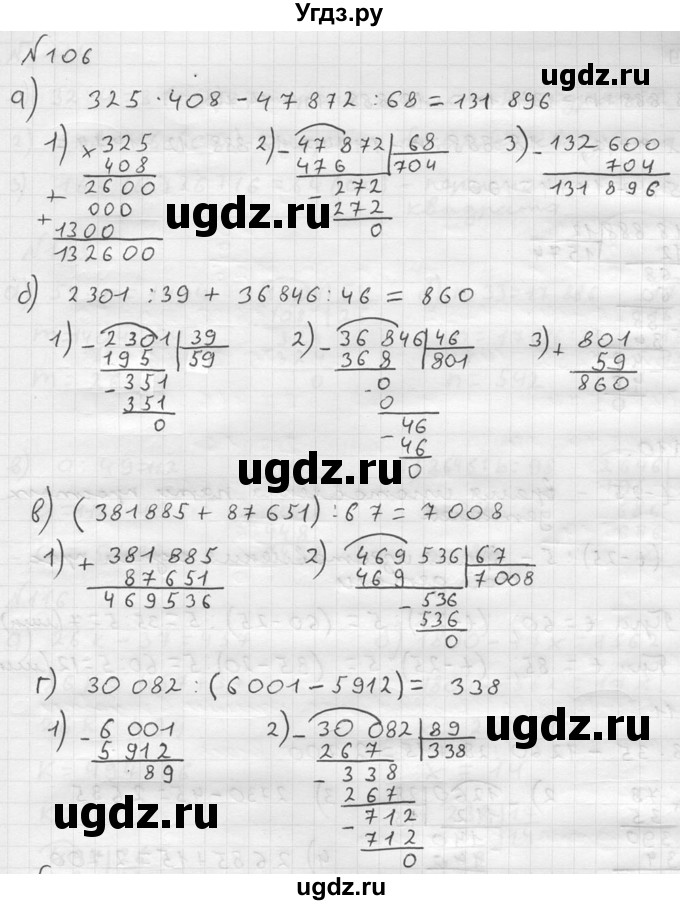 Угдз.ру
№106
а) 325 · 408 - 47 872 : 68 = 131 896
ugdz.ru
1) × 325 2) - 47 872 | 68 3) - 132 600
408 476 704 704
+ 2600 - 272 131 896
000 272
+ 1300 0
132600
ugdz.ru ugdz.ru
б) 2301 : 39 + 36 846 : 46 = 860
1) - 2301 | 39 2) - 36 846 | 46 3) + 801
195 59 368 801 59
- 351 - 0 860
351 0
0 - 46
46
0
ugdz.ru
в) (381885 + 87651) : 67 = 7008
ugdz.ru
1) + 381 885 2) - 469 536 | 67
87651 469 7008
469536 - 536
536
0
ugdz.ru
г) 30 082 : (6001 - 5912) = 338
1) - 6 001 2) - 30 082 | 89
5 912 267 338
89 - 338
267
- 712
712
0
ugdz.ru ugdz.ru
ugdz.ru
ugdz.ru